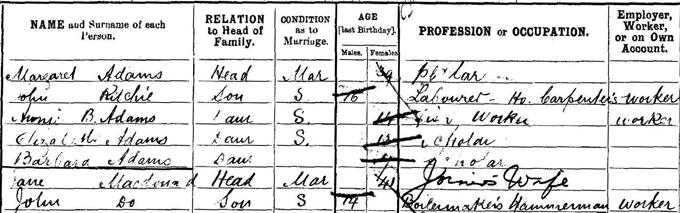 NAME and Surname of each Person. RELATION to Head of Family. CONDITION as to Marriage. AGE [last Birthday]. Males. Females. PROFESSION or OCCUPATION. Employer, Worker, or on Own Account.
Margaret Adams Head Mar 39
John Ritchie Son S. 16 Labourer - Ho. Carpenter's worker
Annie B. Adams Daur S. 14 Worker worker
Elizabeth Adams Daur S. Scholar
Barbara Adams Daur Scholar
Jane Macdonald Head Mar 41 Joiner's Wife
John Do Son S 14 Boilermaker's Hammerman worker